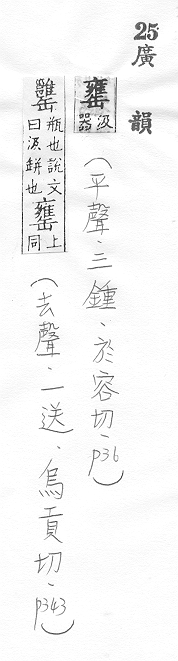 25廣韻
罋汲器(平聲.三鍾.於容切.p36)
甕瓶也說文曰汲缾也罋上同(去聲.一送.烏貢切.p343)